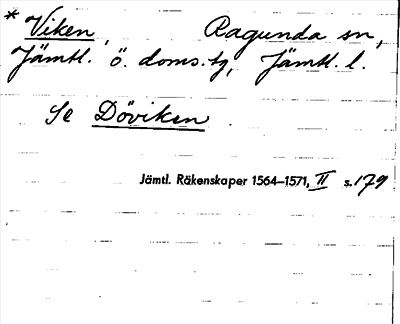 * Viken, Ragunda sn,
Jämtl. ö. doms. tg, Jämtl. l.
Se Döviken.
Jämtl. Räkenskaper 1564–1571, II s. 179